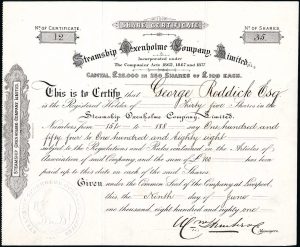 Nº OF CERTIFICATE.
SHARE CERTIFICATE
Nº OF SHARES.
12
35
Steamship Oxenholme Company, Limited.
Incorporated under
The Companies Acts 1862, 1867 and 1877
CAPITAL £25,000 IN 250 SHARES OF £100 EACH.
This is to Certify that George Roddick Esq
is the Registered Holder of Thirty five Shares in the
Steamship Oxenholme Company, Limited.
Numbers from 154 to 188 say One hundred and
fifty four to One hundred and eighty eight
subject to the Regulations and Rules contained in the Articles of
Association of said Company, and the sum of £100 has been
paid up to this date in each of the said Shares.
Given under the Common Seal of the Company at Liverpool
this the Ninth day of June
one thousand eight hundred and eighty one
Managers.
STEAMSHIP OXENHOLME COMPANY LIMITED.